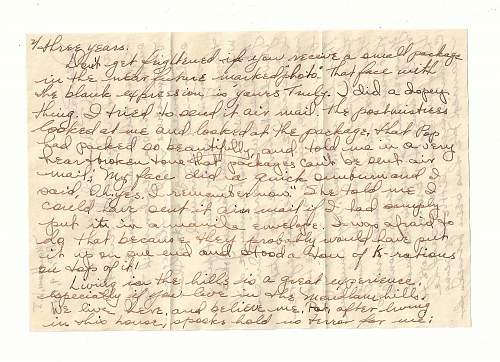 2/ three years.
Don't get frightened if you receive a small package
in the near future marked "photo". That face with
the blank expression is yours truly. I did a dopey
thing. I tried to send it air mail. The postmistress
looked at me and looked at the package, that Pop
had packed so beautifully, and told me in a very
heartbroken tone that packages can't be sent air
mail; My face did a quick sunburn and I
said, Oh yes, I remember now." She told me I
could have sent it air mail if I had simply
put it in a manila envelope. I was afraid to
do that because they probably would have put
it up on one end and stood a ton of K-rations
on top of it!
Living in the hills is a great experience,
especially if you live in the mountain hills.
We live here, and believe me, after living
in this house, spooks hold no terror for me;